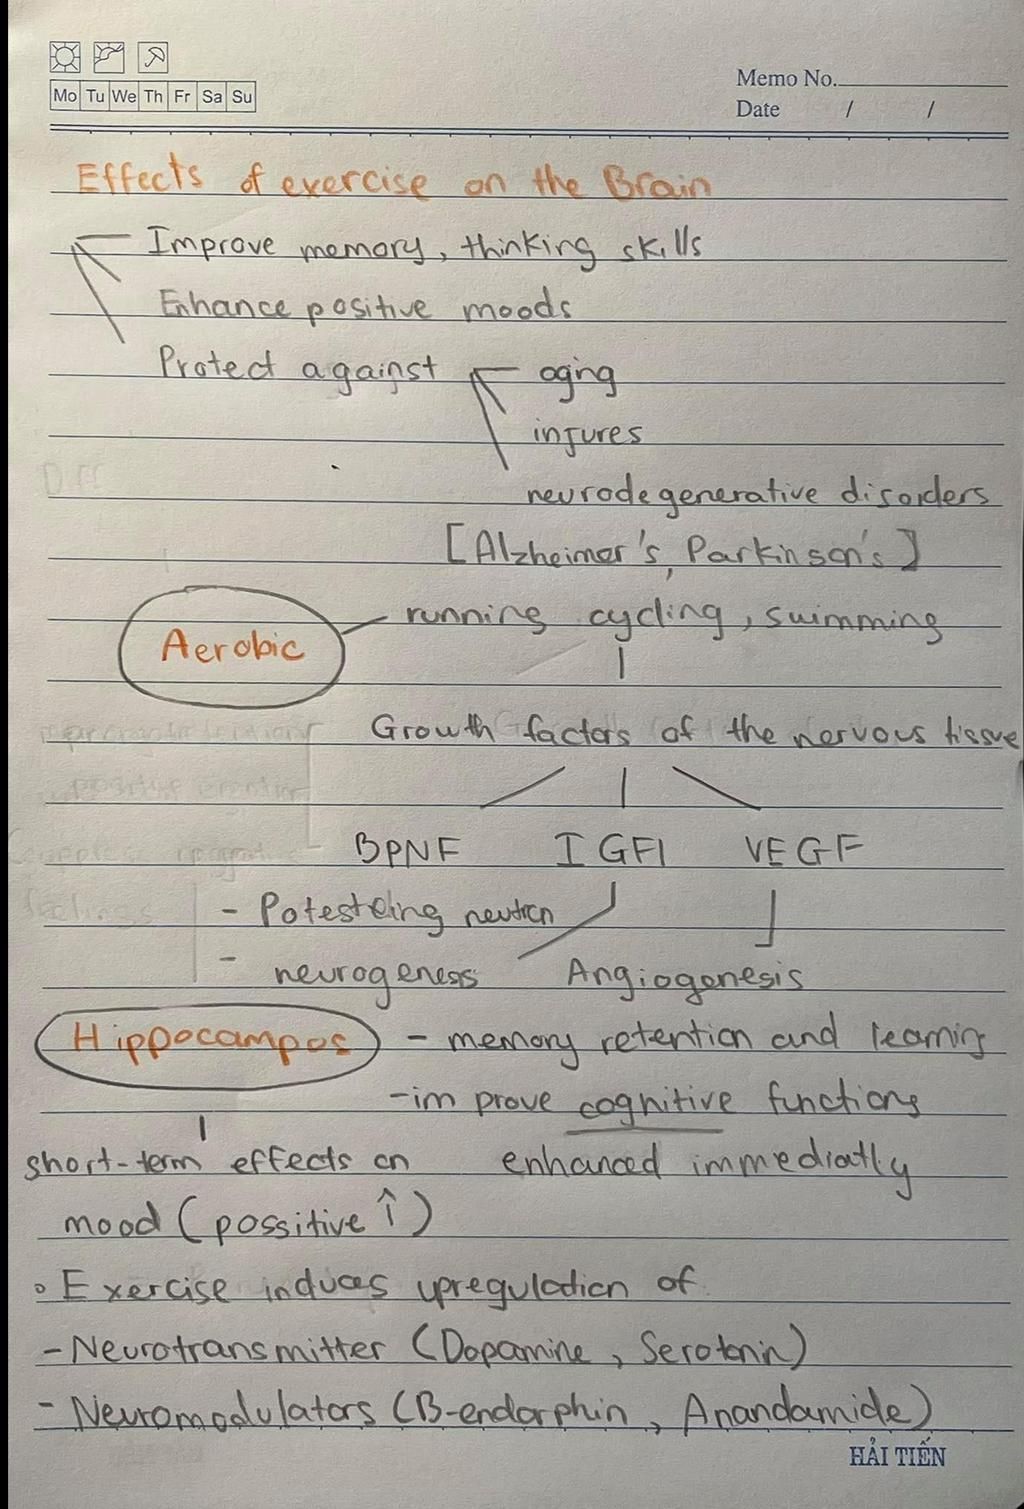 Mo Tu We Th Fr Sa Su
Memo No.
Date / /
Effects of exercise on the Brain
Improve memory, thinking skills
Enhance positive moods
Protect against aging
injures
neurodegenerative disorders
[Alzheimer's, Parkinson's]
Aerobic
running cycling, swimming
Growth factors of the nervous tissue
BPNF IGF1 VEGF
- neurogeness Angiogenesis
Hippocampus - memory retention and learning
- improve cognitive functions
short-term effects on enhanced immediatly
mood (possitive ↑)
◦ Exercise induces upregulation of
- Neurotransmitter (Dopamine, Serotonin)
- Neuromodulators (B-endorphin, Anandamide)
HẢI TIẾN